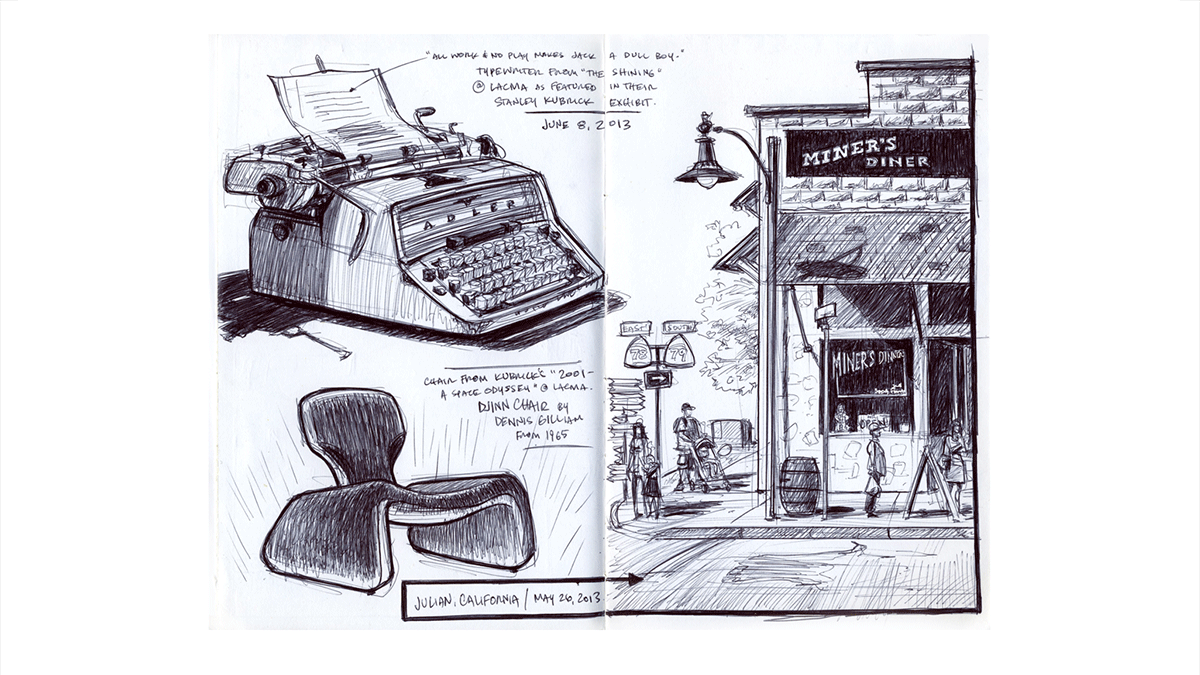 "ALL WORK & NO PLAY MAKES JACK A DULL BOY."
TYPEWRITER FROM "THE SHINING"
@ LACMA AS FEATURED IN THEIR
STANLEY KUBRICK EXHIBIT.
JUNE 8, 2013
ADLER
CHAIR FROM KUBRICK'S "2001-
A SPACE ODYSSEY" @ LACMA.
DJINN CHAIR BY
DENNIS GILLIAM
FROM 1965
JULIAN, CALIFORNIA / MAY 26, 2013
MINER'S
DINER
EAST SOUTH
78 79
MINER'S DINER
OPEN